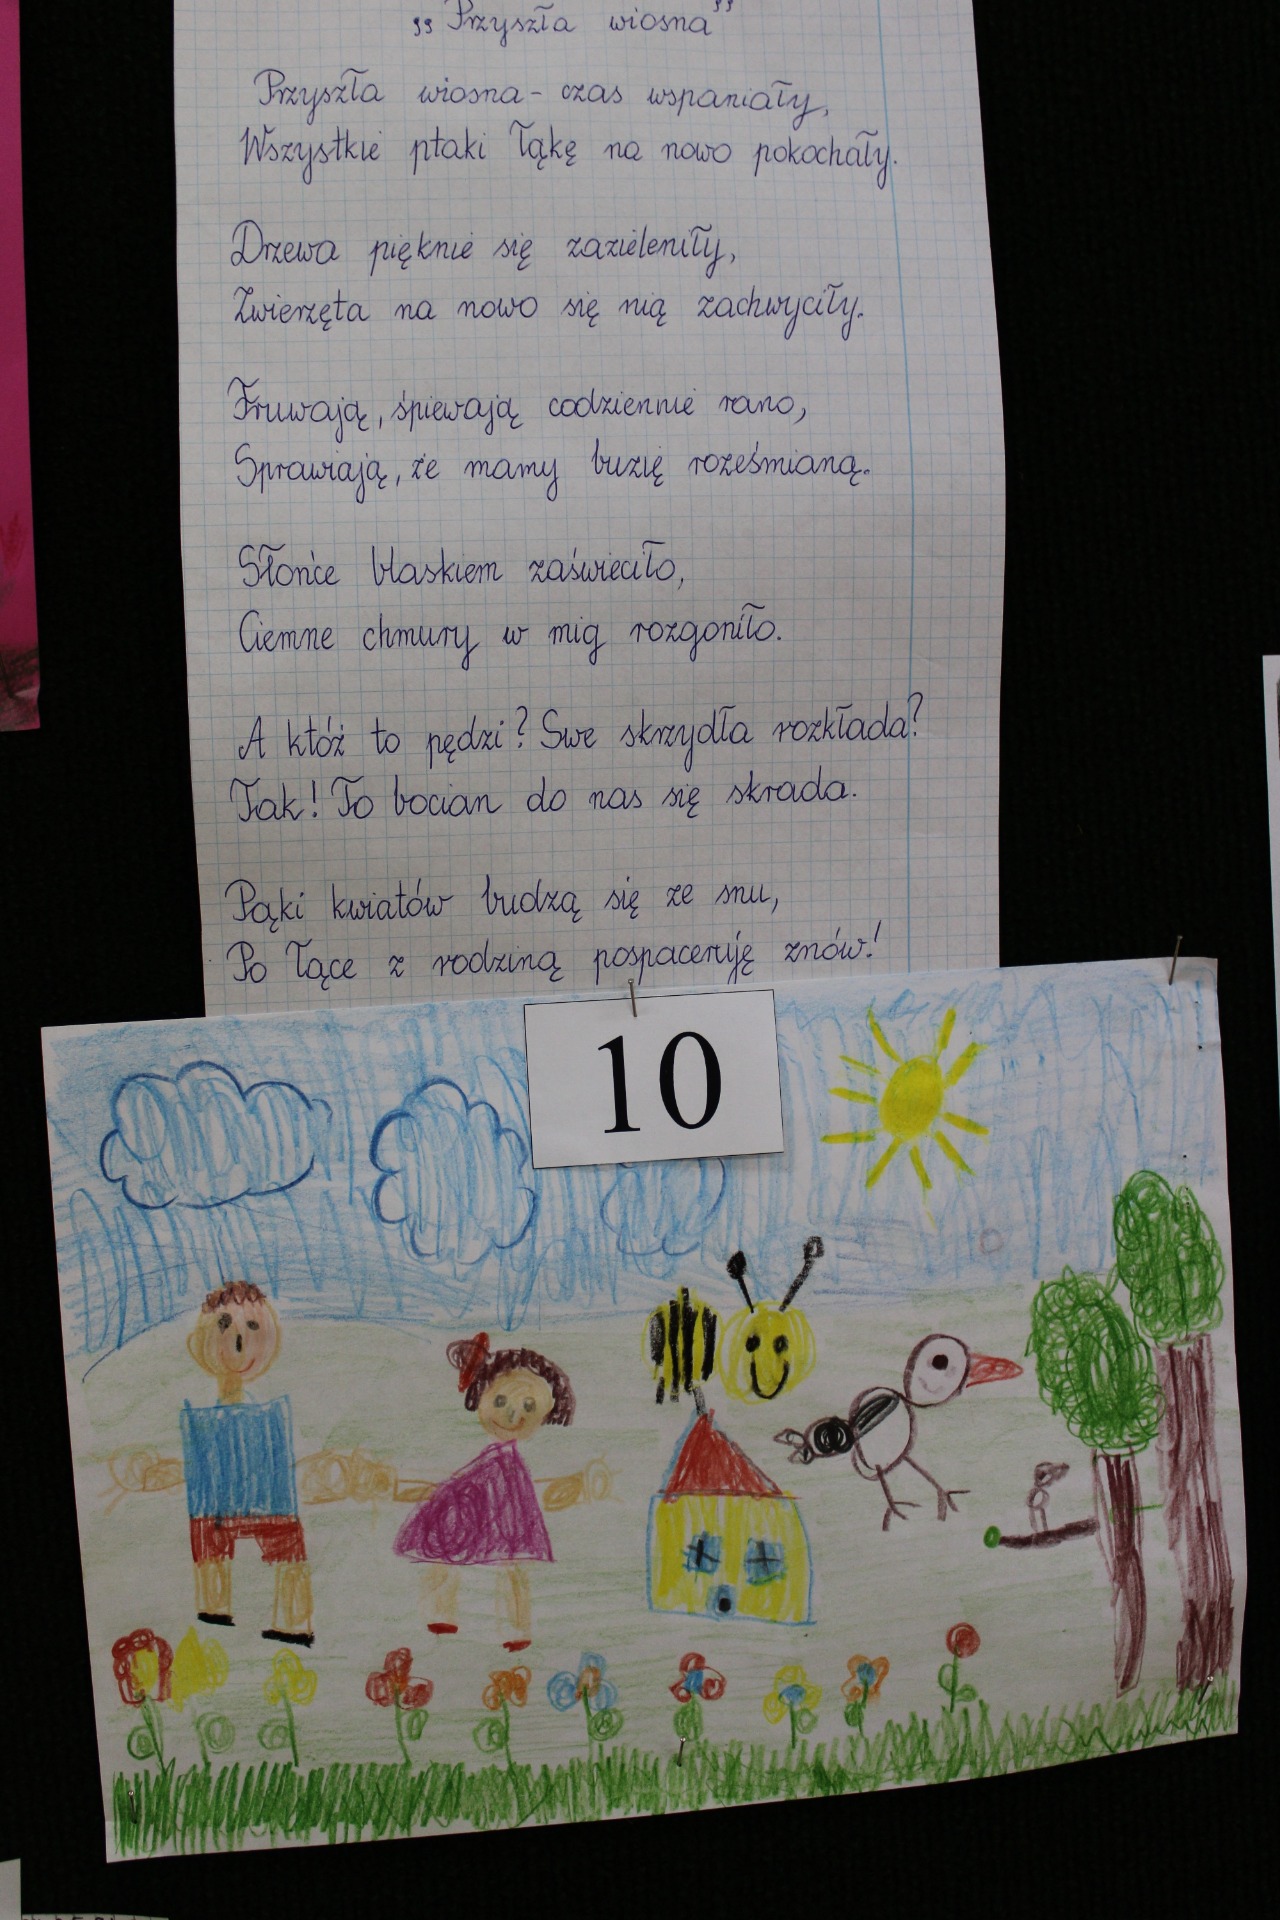 „Przyszła wiosna”
Przyszła wiosna - czas wspaniały,
Wszystkie ptaki łąkę na nowo pokochały.
Drzewa pięknie się zazieleniły,
Zwierzęta na nowo się nią zachwyciły.
Fruwają, śpiewają codziennie rano,
Sprawiają, że mamy buzię roześmianą.
Słońce blaskiem zaświeciło,
Ciemne chmury w mig rozgoniło.
A któż to pędzi? Swe skrzydła rozkłada?
Tak! To bocian do nas się skrada.
Pąki kwiatów budzą się ze snu,
Po łące z rodziną pospaceruję znów!
10